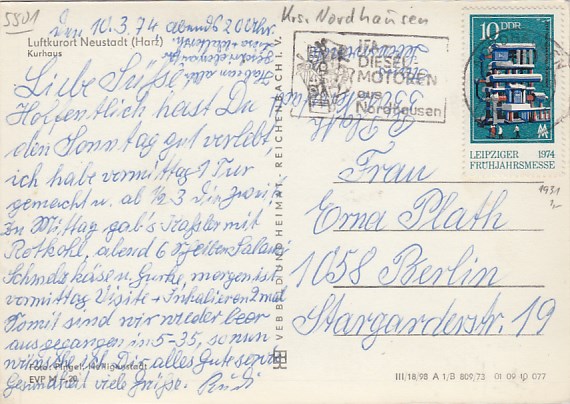 5801
den 10.3.74 abends 2000 Uhr.
Luftkurort Neustadt (Harz)
Kurhaus
Liebe Süße!
Hoffentlich hast Du
den Sonntag gut verlebt,
ich habe vormittag 1 Tur
gemacht u. ab ½ 3
Zu Mittag gab's Kaßler mit
Rotkohl, abend 6 Scheiben Salami
Schmelzkäse u. Gurke, morgen ist
vormittag Visite + Inhalieren 2 mal
Somit sind wir wieder
ausgegangen in 5-35, so nun
wünsche ich Dir alles Gute
Gesundheit viele Grüße. Rudi
Foto: Pingel, Heiligenstadt
EVP M -,20
VEB BILD UND HEIMAT REICHENBACH i. V.
Krs. Nordhausen
IFA
DIESEL-
MOTOREN
aus
Nordhausen
R. Plath
10 DDR
LEIPZIGER 1974
FRÜHJAHRSMESSE
1931
Frau
Erna Plath
1058 Berlin
Stargarderstr. 19
III/18/98 A 1/B 809/73 01 09 10 077